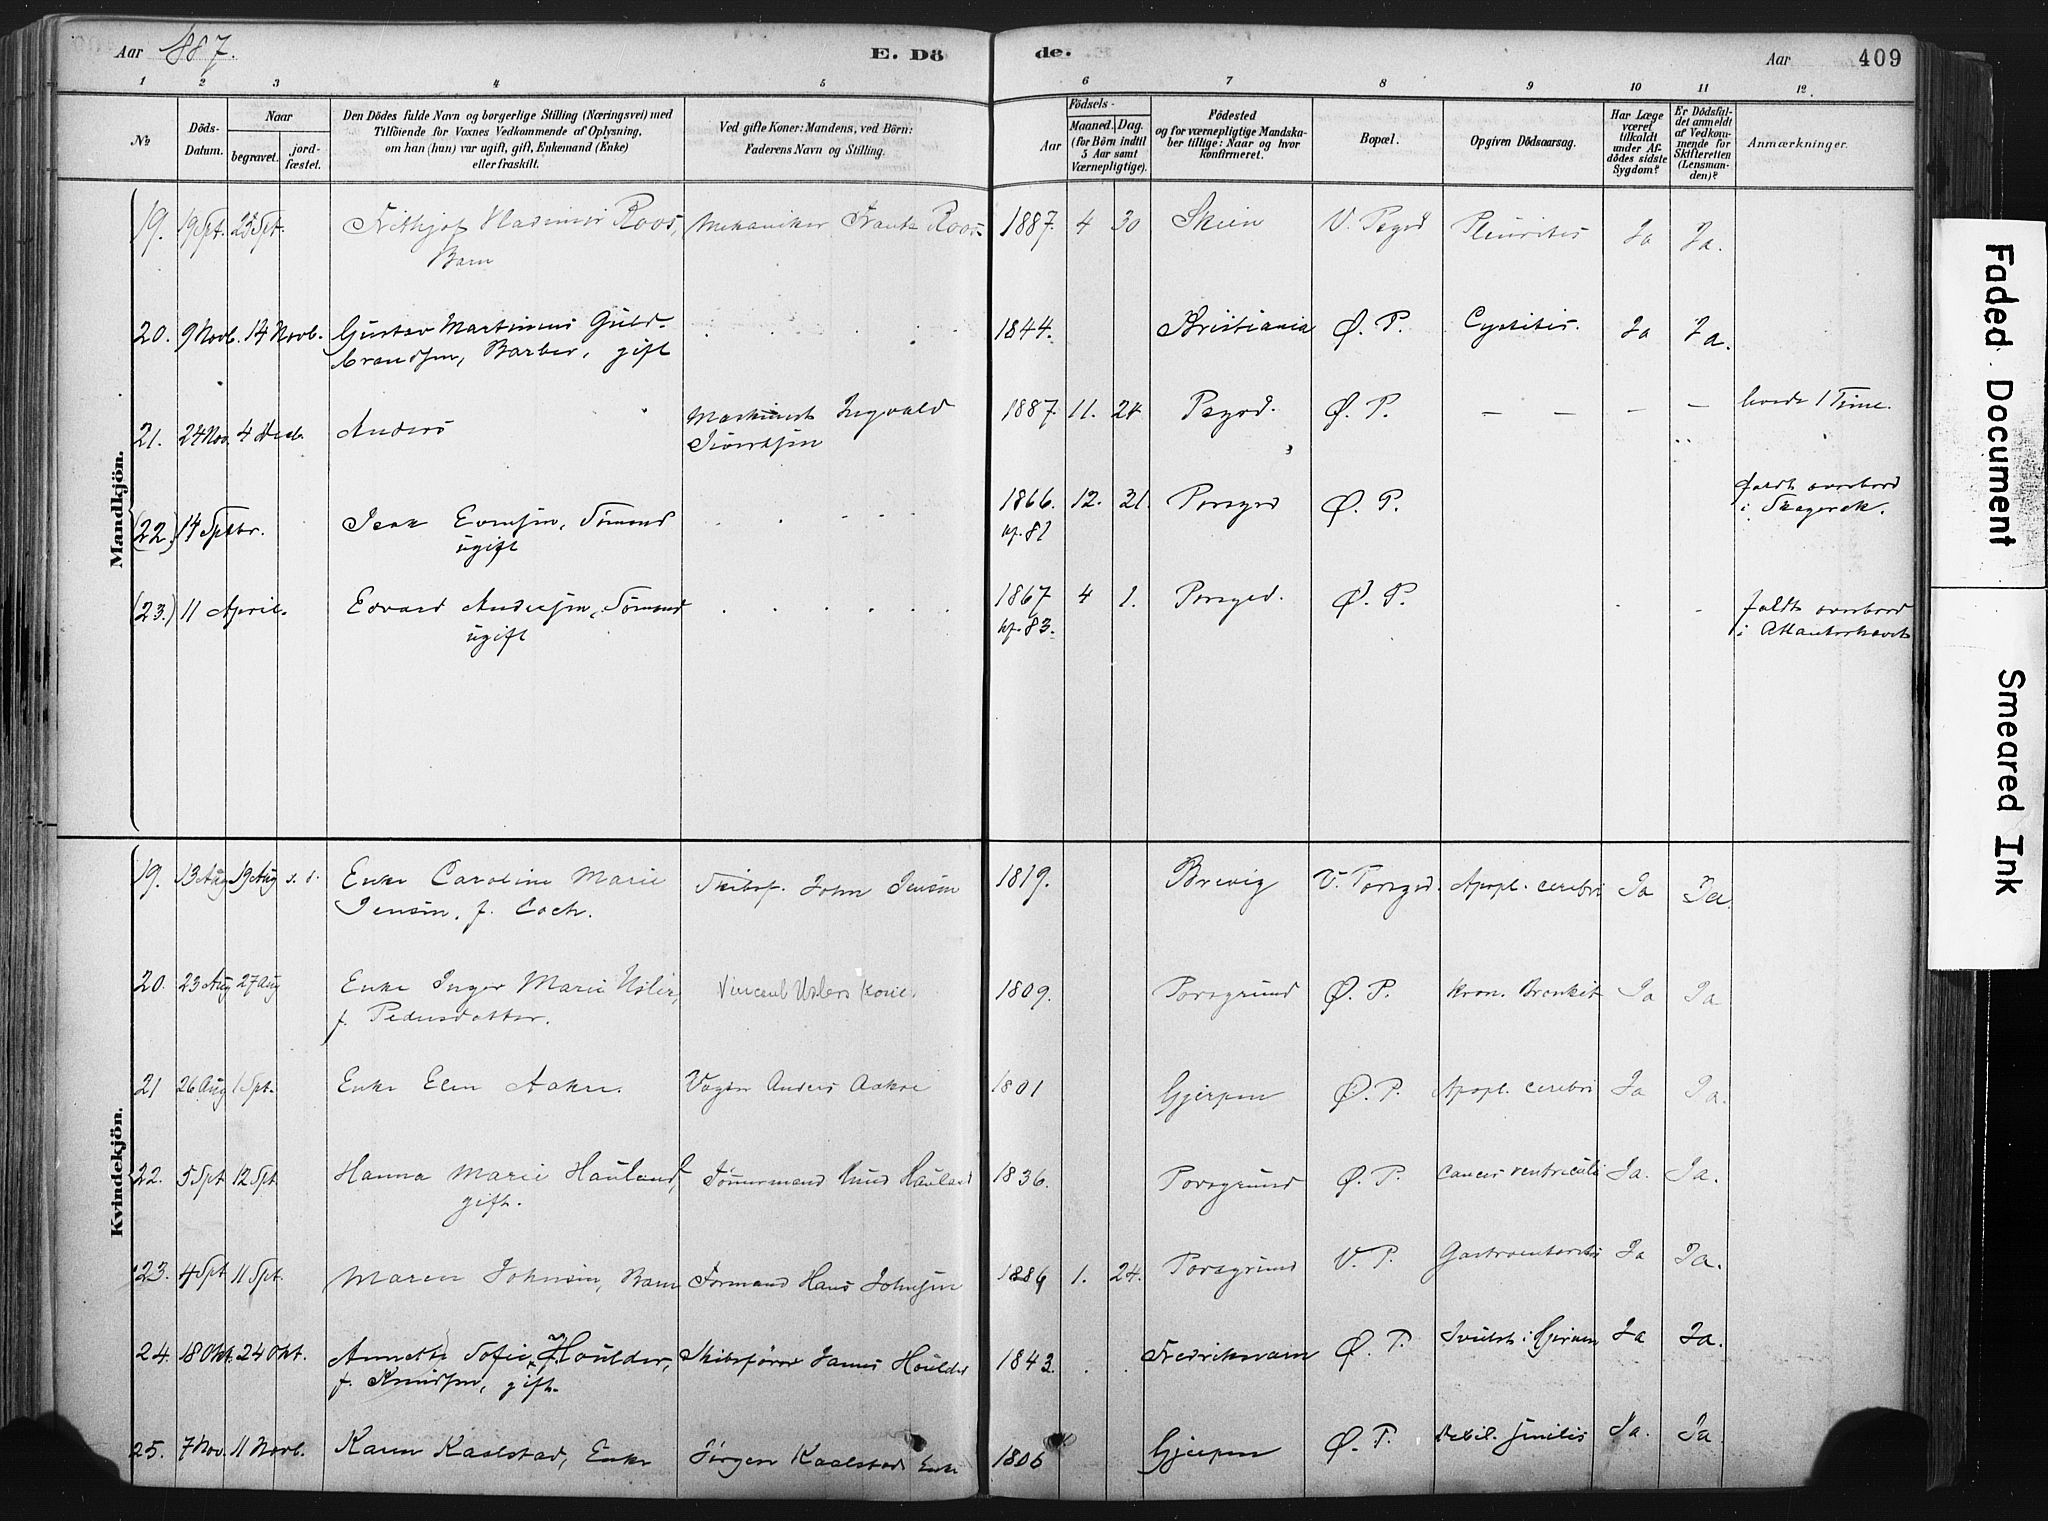 Aar 1887. E. Dö de. Aar 409
1 2 3 4 5 6 7 8 9 10 11 12.
№ Döds-Datum. Naar begravet. jord-fæstet.
Den Dödes fulde Navn og borgerlige Stilling (Næringsvei) med
Tilföiende for Voxnes Vedkommende af Oplysning,
om han (hun) var ugift, gift, Enkemand (Enke)
eller fraskilt.
Ved gifte Koner: Mandens, ved Börn:
Faderens Navn og Stilling.
Födsels-
Aar Maaned. Dag.
(for Börn indtil
5 Aar samt
Værnepligtige).
Födested
og for værnepligtige Mandska-
ber tillige: Naar og hvor
konfirmeret.
Bopæl.
Opgiven Dödsaarsag.
Har Læge
været
tilkaldt
under Af-
dödes sidste
Sygdom?
Er Dödsfal-
det anmeldt
af Vedkom-
mende for
Skifteretten
(Lensman-
den)?
Anmærkninger.
Mandkjön.
19. 19 Spt. 23 Spt. Frithjof Vladimir Roos, Mekaniker Frantz Roos 1887. 4 30 Skien V. Psgrd Pleuritis Ja Ja.
Barn
20. 9 Novb. 14 Novb. Gustav Martinius Guld- 1844. Kristiania Ø. P. Cystitis. Ja Ja.
brandsen, Barber, gift
21. 24 Nov. 4 Decb. Anders Maskinist Ingvald 1887. 11. 24. Psgrd. Ø. P. — — — — levede 1 Time.
Sivertsen
(22.) 14 Septbr. Isak Evensen, Sömand 1866. 12. 21. Porsgrd Ø. P. faldt overbord
ugift kf. 81 i Skagerak.
(23.) 11 April. Edvard Andersen, Sömand 1867 4 1. Porsgrd. Ø. P. faldt overbord
ugift kf. 83. i Atlanterhavet
Kvindekjön.
19. 13 Aug 19 Aug s. d. Enke Caroline Marie Skibsf. John Jensen 1819. Brevig V. Porsgrd. Apopl. cerebri Ja Ja.
Jensen, f. Coch.
20. 23 Aug 27 Aug Enke Inger Marie Usler, Vincent Uslers Kone. 1809. Porsgrund Ø. P. Kron. Bronkit Ja Ja
f. Pedersdatter.
21 26 Aug 1 Spt. Enke Elen Aakre. Anders Aakre 1801 Gjerpen Ø. P. Apopl. cerebri Ja Ja.
22. 5 Spt 12 Spt Hanna Marie Hauland, Tömmermand Knud Hauland 1836. Porsgrund Ø. P. Cancer ventriculi Ja. Ja.
gift.
23. 4 Spt 11 Spt. Maren Johnsen, Barn Formand Hans Johnsen 1886 1. 24. Porsgrund V. P. Gastroenteritis Ja Ja.
24. 18 Okt. 24 Okt. Annette Sofie Houlder, Skibsförer James Houlder 1843. Fredriksværn Ø. P. Svulst i Hjernen Ja Ja.
f. Knudsen, gift.
25. 7 Nov. 11 Novb. Karen Kaalstad, Enke Jörgen Kaalstads Enke 1806 Gjerpen Ø. P. Debil. senilis Ja. Ja.
Faded Document
Smeared Ink